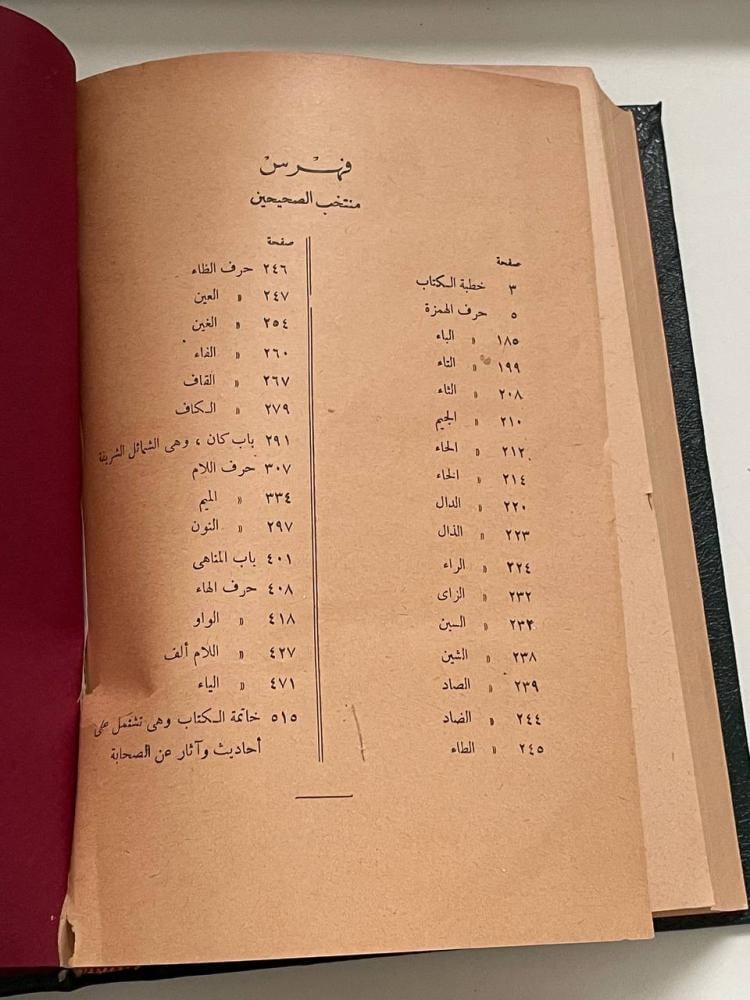 فهرس
منتخب الصحيحين
صفحة
٣ خطبة الكتاب
٥ حرف الهمزة
١٨٥ » الباء
١٩٩ » التاء
٢٠٨ » الثاء
٢١٠ » الجيم
٢١٢ » الحاء
٢١٤ » الخاء
٢٢٠ » الدال
٢٢٣ » الذال
٢٢٤ » الراء
٢٣٢ » الزاى
٢٣٤ » السين
٢٣٨ » الشين
٢٣٩ » الصاد
٢٤٤ » الضاد
٢٤٥ » الطاء
صفحة
٢٤٦ حرف الظاء
٢٤٧ » العين
٢٥٤ » الغين
٢٦٠ » الفاء
٢٦٧ » القاف
٢٧٩ » الكاف
٢٩١ باب كان ، وهى الشمائل الشريفة
٣٠٧ حرف اللام
٣٣٤ » الميم
٢٩٧ » النون
٤٠١ باب المناهى
٤٠٨ حرف الهاء
٤١٨ » الواو
٤٢٧ » اللام ألف
٤٧١ » الياء
٥١٥ خاتمة الكتاب وهى تشتمل على
أحاديث وآثار عن الصحابة